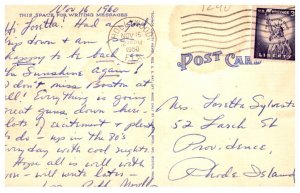 Nov 16 1960
THIS SPACE FOR WRITING MESSAGES
Hi Loretta! Had a good
trip down & am
happy to be back in
the Sunshine again!
I don't miss Boston at
all! Everything is going
great guns down here.
Lots of excitement & plenty
to do - up in the 70's
every day with cool nights!
Hope all is well with
you - will write later -
Love,
NOV 16
1960
POST CARD
LIBERTY
Mrs. Loretta Sylvester
52 Larch St
Providence,
Rhode Island